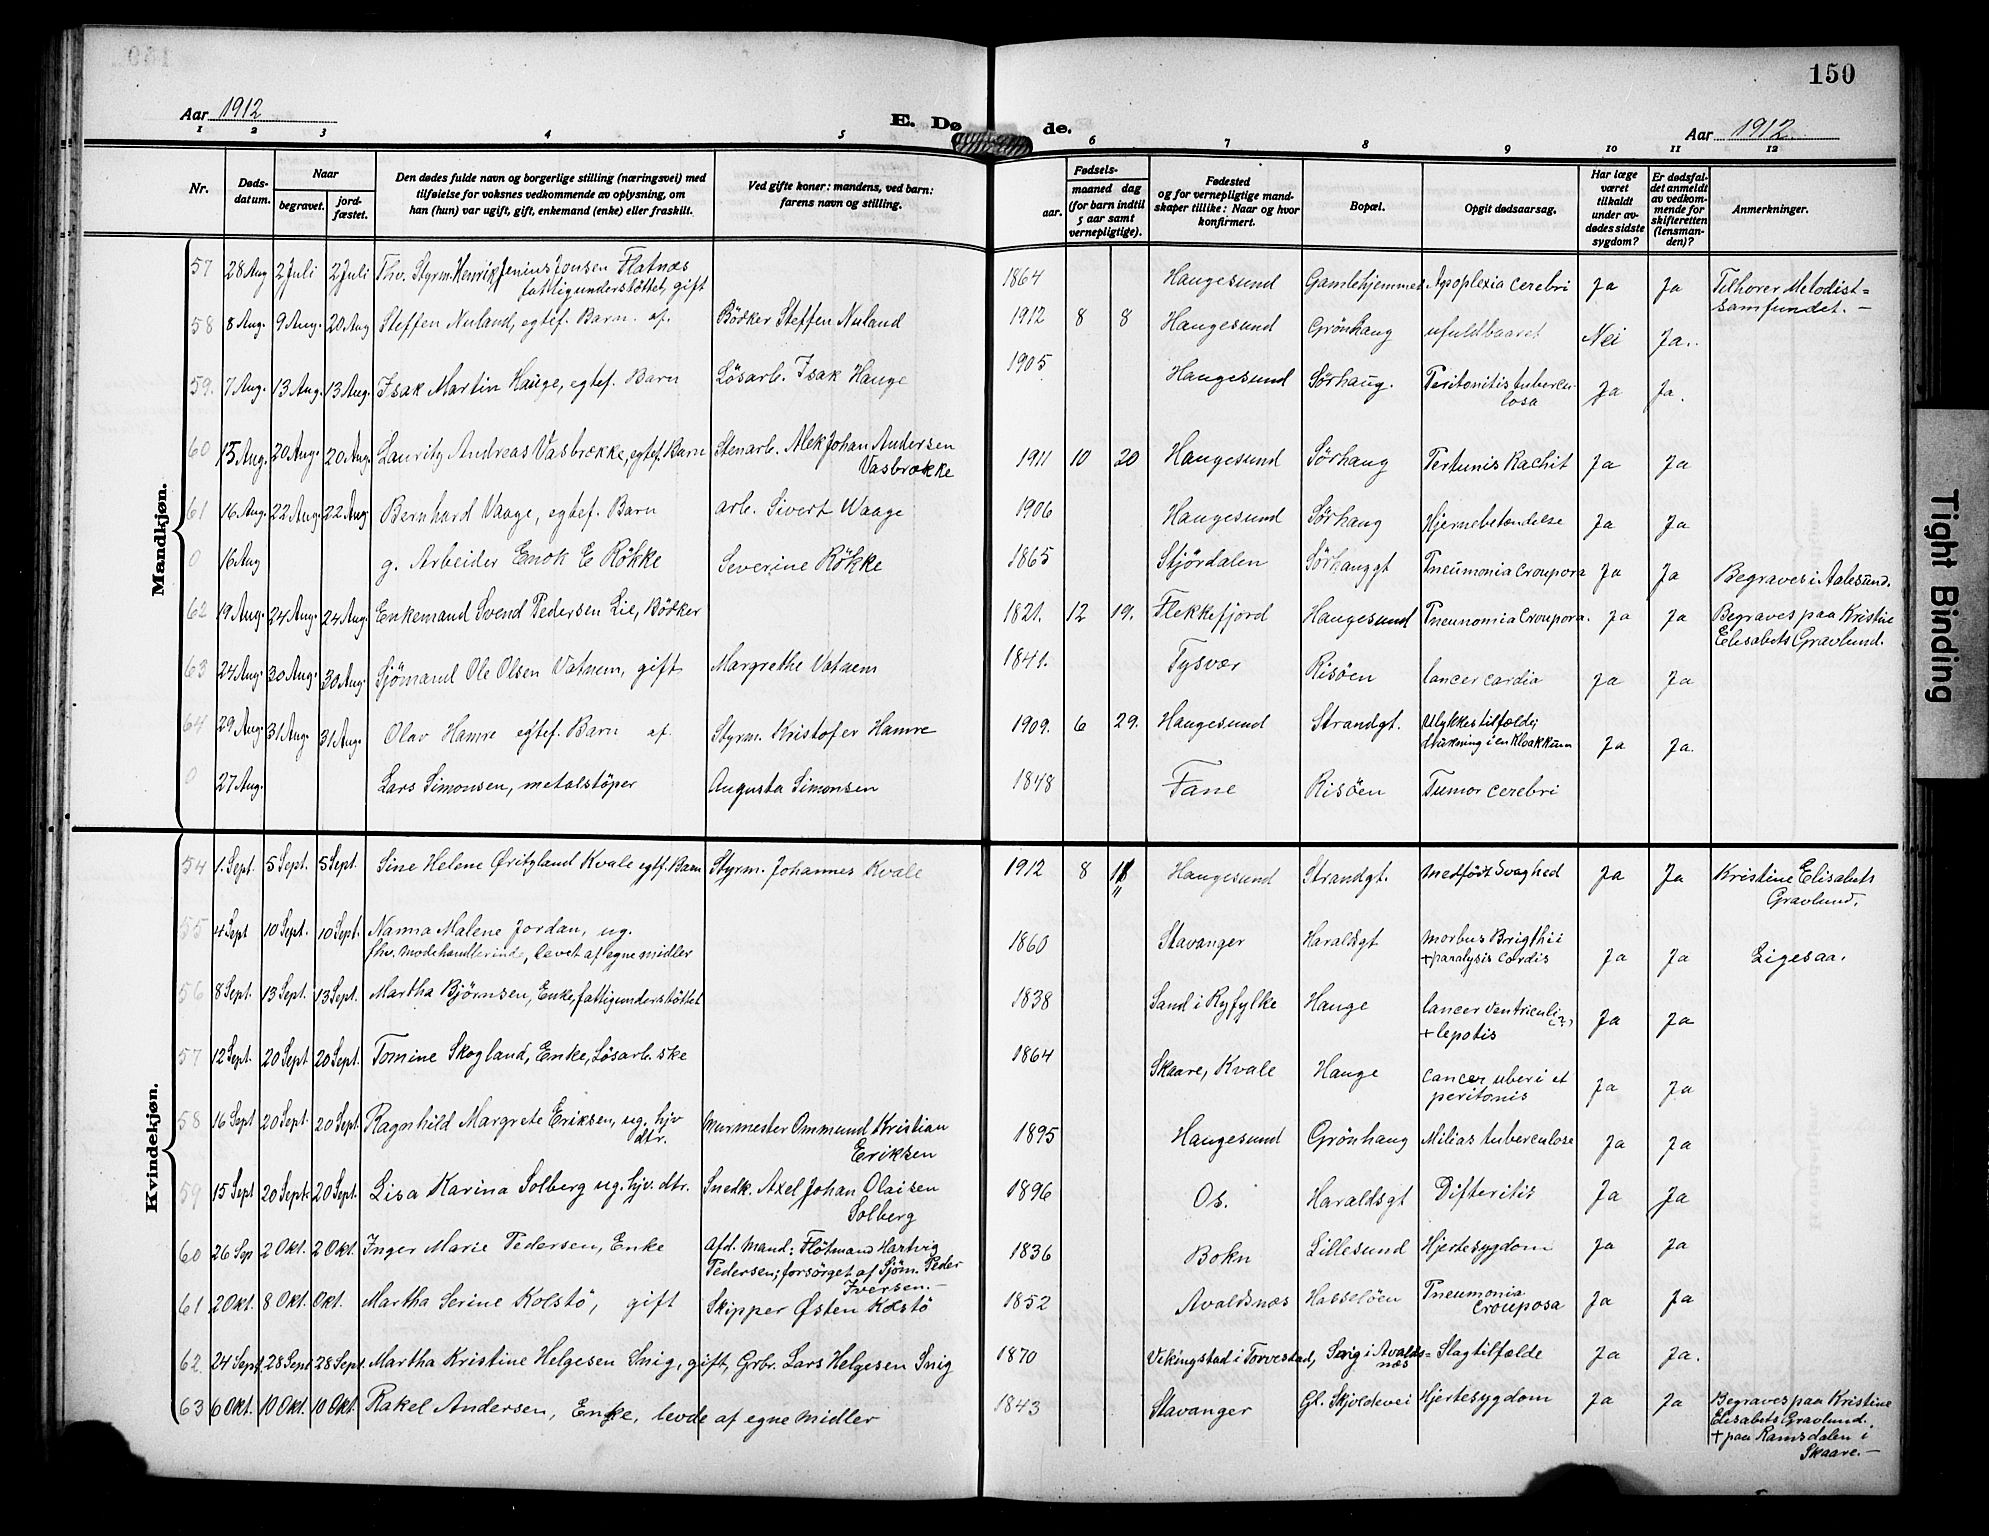 150
Aar 1912
E. Dø de.
Aar 1912
1 2 3 4 5 6 7 8 9 10 11 12
Nr.
Døds-
datum.
Naar
begravet.
jord-
fæstet.
Den dødes fulde navn og borgerlige stilling (næringsvei) med
tilføielse for voksnes vedkommende av oplysning, om
han (hun) var ugift, gift, enkemand (enke) eller fraskilt.
Ved gifte koner: mandens, ved barn:
farens navn og stilling.
Fødsels-
aar.
maaned dag
(for barn indtil
5 aar samt
vernepligtige).
Fødested
og for vernepligtige mand-
skaper tillike: Naar og hvor
konfirmert.
Bopæl.
Opgit dødsaarsag.
Har læge
været
tilkaldt
under av-
dødes sidste
sygdom?
Er dødsfal-
det anmeldt
av vedkom-
mende for
skifteretten
(lensman-
den)?
Anmerkninger.
Mandkjøn.
57 28 Aug 2 Juli 2 Juli Fhv. Styrm. Henrik Jenius Jonsen Flatnæs 1864 Haugesund Gamlehjemmet Apoplexia cerebri Ja Ja Tilhører Metodist=
fattigunderstöttet, gift samfundet. –
58 8 Aug. 9 Aug. 20 Aug Steffen Nuland, egtef. Barn af Bödker Steffen Nuland 1912 8 8 Haugesund Grönhaug ufuldbaaret Nei Ja.
59. 7 Aug. 13 Aug. 13 Aug. Isak Martin Hauge, egtef. Barn Løsarb. Isak Hauge 1905 Haugesund Sörhaug. Peritonitis tubercu-
losa Ja Ja.
60 15 Aug. 20 Aug. 20 Aug. Lauritz Andreas Vasbrække, egtef. Barn Stenarb. Alek Johan Andersen 1911 10 20 Haugesund Sörhaug Pertusis Rachit Ja Ja
Vasbrække
61 16 Aug. 22 Aug. 22 Aug Bernhard Vaage, egtef. Barn arb. Sivert Waage 1906 Haugesund Sörhaug Hjernebetændelse Ja Ja
0 16 Aug g. Arbeider Enok E Rökke Severine Rökke 1865 Stjördalen Sörhauggt Pneumonia Crouposa Ja Ja Begraves i Aalesund.
62 19 Aug. 24 Aug. 24 Aug. Enkemand Svend Pedersen Lie, Bödker 1821. 12 19. Flekkefjord Haugesund Pneunomia Crouposa. Ja Ja Begraves paa Kristine
Elisabets Gravlund.
63 24 Aug. 30 Aug. 30 Aug. Sjömand Ole Olsen Vatnem, gift Margrethe Vatnem 1841. Tysvær Risöen Cancer cardia Ja Ja
64 29 Aug. 31 Aug. 31 Aug. Olav Hamre egtef. Barn af Styrm. Kristofer Hamre 1909. 6 29. Haugesund Strandgt. Ulykkestilfælde;
drukning i en Kloakkum Ja Ja.
0 27 Aug. Lars Simonsen, metalstöper Augusta Simonsen 1848 Fane Risöen Tumor cerebri
Kvindekjøn.
54 1. Sept. 5 Sept. 5 Sept. Sine Helene Kvale egtf. Barn Styrm. Johannes Kvale 1912 8 Haugesund Strandgt. Medfödt Svaghed Ja Ja Kristine Elisabets
Gravlund.
55 4 Sept 10 Sept. 10 Sept. Nanna Malene Jordan, ug. 1860 Stavanger Haraldsgt Morbus Brigthii Ja Ja Ligesaa.
fhv. Modehandlerinde, levet af egne midler + paralysis Cordis
56 8 Sept. 13 Sept. 13 Sept. Martha Bjørnsen, Enke, fattigunderstöttet 1838 Sand i Ryfylke Hauge Cancer ventriculi (?)
+ lepotis Ja Ja
57 12 Sept. 20 Sept 20 Sept. Tomine Skogland, Enke, Lösarb.ske 1864 Skaare, Kvale Hauge Cancer uberi et
peritonis Ja Ja
58 16 Sept 20 Sept. 20 Sept. Ragnhild Margrete Eriksen, ug. hjv. Murmester Ommund Kristian 1895 Haugesund Grönhaug Milias tuberculose Ja Ja
dtr. Eriksen
59 15 Sept 20 Sept. 20 Sept. Lisa Karina Solberg ug. hjv. dtr. Snedk. Axel Johan Olaisen 1896 Os. Haraldsgt Difteritis Ja Ja
Solberg
60 26 Sep 2 Okt. 2 Okt. Inger Marie Pedersen, Enke Afd. Mand: Flötmand Hartvig 1836 Bokn Lillesund Hjertesygdom Ja Ja
Pedersen; forsörget af Sjöm. Peder
Iversen. –
61 2 Okt. 8 Okt. Okt. Martha Serine Kolstö, gift Skipper Østen Kolstö 1852 Avaldsnæs Hasselöen Pneumonia
Crouposa Ja Ja
62. 24 Sept. 28 Sept 28 Sept. Martha Kristine Helgesen Snig, gift, Grbr. Lars Helgesen Snig 1870 Vikingstad i Torvestad, Snig i Avalds= Slagtilfælde Ja Ja.
næs
63 6 Okt. 10 Okt. 10 Okt. Rakel Andersen, Enke, levde af egne Midler 1843 Stavanger Gl. Skjoldevei Hjertesygdom Ja Ja Begraves paa Kristine
Elisabets Gravlund.
+ paa Ramsdalen i
Skaare. –
Tight Binding